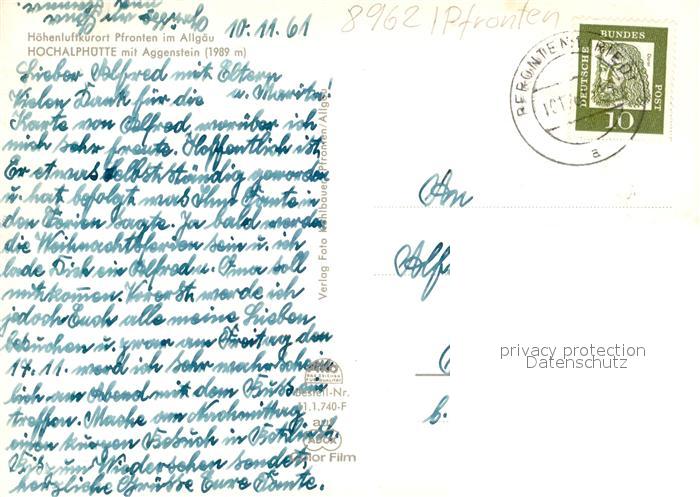 10.11.61
8962 / Pfronten
Höhenluftkurort Pfronten im Allgäu
HOCHALPHÜTTE mit Aggenstein (1989 m)
Lieber Alfred mit Eltern
u. Marita!
Vielen Dank für die
Karte von Alfred, worüber ich
mich sehr freute. Hoffentlich ist
Er etwas selbstständig geworden
u. hat befolgt was Ihm Tante in
den Ferien sagte. Ja bald werden
die Weihnachtsferien sein u. ich
lade Dich ein Alfred u. Oma soll
mitkommen. Vorerst werde ich
jedoch Euch alle meine Lieben
besuchen u. zwar am Freitag den
17.11. werd ich sehr wahrschein
lich am Abend mit dem Buss ein
treffen. Mache am Nachmittag
einen kurzen Besuch in
Bis zum Wiedersehen sendet
herzliche Grüsse Eure Tante.
Verlag Foto Pfronten/Allgäu
Bestell-Nr.
1.1.740-F
auf
Color Film
DEUTSCHE BUNDESPOST
Dürer
10
a
Hrn
Alf
b.
privacy protection
Datenschutz